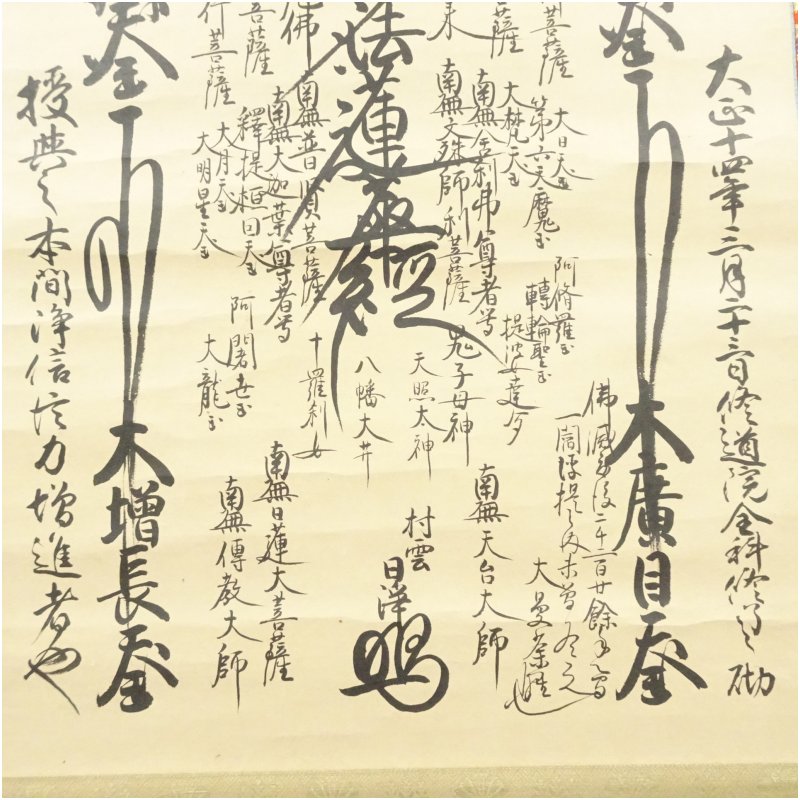 大正十四年三月二十三日修道院全科修了之砌
大廣目天王
大日天王
第六天魔王
阿脩羅王
轉輪聖王
菩薩
大梵天王
提婆達多
佛滅度後二千二百廿餘年之間
一閻浮提之内未曾有之
大曼荼羅也
菩薩
南無舎利弗尊者等
鬼子母神
南無天台大師
来
南無文殊師利菩薩
天照太神
法蓮華經
村雲
日淨
八幡大菩薩
佛
南無普賢菩薩
十羅刹女
菩薩
南無大迦葉尊者等
南無日蓮大菩薩
行菩薩
釋提桓因天王
阿闍世王
南無傳教大師
大月天王
大龍王
大明星天王
大増長天王
授與之本間淨信信力増進者也